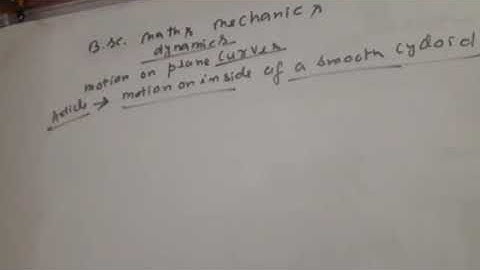 B.sc. maths mechanics
dynamics
motion on plane curves
Article → motion on inside of a smooth cycloid